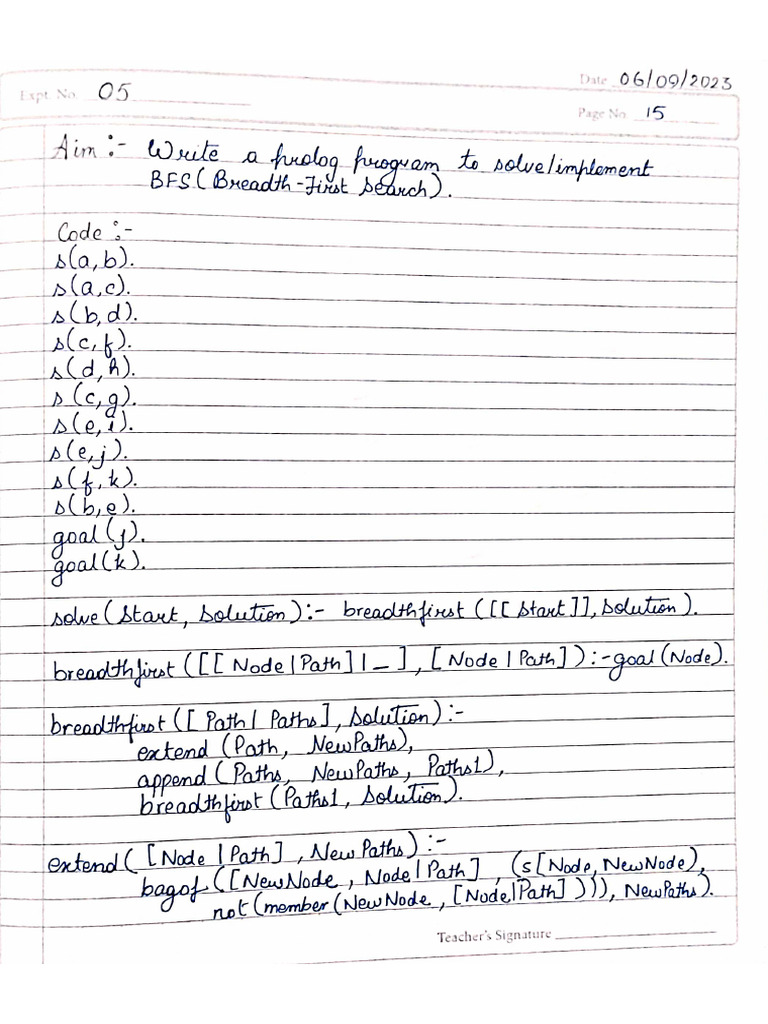 Date 06/09/2023
Expt. No. 05
Page No. 15
Aim :- Write a prolog program to solve/implement
BFS (Breadth-First Search).
Code :-
s(a,b).
s(a,c).
s(b,d).
s(c,f).
s(d,h).
s(c,g).
s(e,i).
s(e,j).
s(f,k).
s(b,e).
goal(j).
goal(k).
solve(Start, Solution) :- breadthfirst([[Start]], Solution).
breadthfirst([[Node|Path]|_], [Node|Path]) :- goal(Node).
breadthfirst([Path|Paths], Solution) :-
extend(Path, NewPaths),
append(Paths, NewPaths, Paths1),
breadthfirst(Paths1, Solution).
extend([Node|Path], NewPaths) :-
bagof([NewNode, Node|Path], (s[Node, NewNode),
not(member(NewNode, [Node|Path]))), NewPaths).
Teacher's Signature